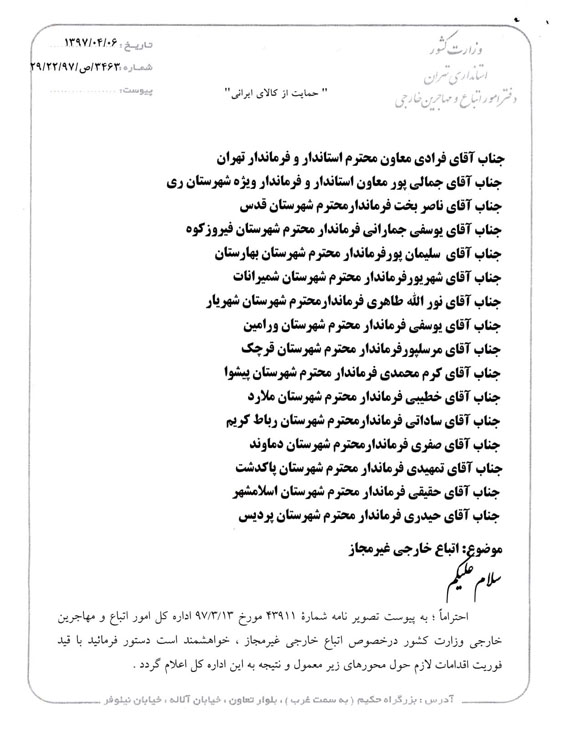 وزارت کشور
استانداری تهران
دفتر امور اتباع و مهاجرین خارجی
تاریخ : ۱۳۹۷/۰۴/۰۶
شماره : ۲۹/۲۲/۹۷/ص/۳۴۶۳
پیوست: ................
" حمایت از کالای ایرانی "
جناب آقای فرادی معاون محترم استاندار و فرماندار تهران
جناب آقای جمالی پور معاون استاندار و فرماندار ویژه شهرستان ری
جناب آقای ناصر بخت فرماندارمحترم شهرستان قدس
جناب آقای یوسفی جمارانی فرماندار محترم شهرستان فیروزکوه
جناب آقای سلیمان پورفرماندار محترم شهرستان بهارستان
جناب آقای شهریورفرماندار محترم شهرستان شمیرانات
جناب آقای نور الله طاهری فرماندارمحترم شهرستان شهریار
جناب آقای یوسفی فرماندار محترم شهرستان ورامین
جناب آقای مرسلپورفرماندار محترم شهرستان قرچک
جناب آقای کرم محمدی فرماندار محترم شهرستان پیشوا
جناب آقای خطیبی فرماندار محترم شهرستان ملارد
جناب آقای ساداتی فرماندارمحترم شهرستان رباط کریم
جناب آقای صفری فرماندارمحترم شهرستان دماوند
جناب آقای تمهیدی فرماندار محترم شهرستان پاکدشت
جناب آقای حقیقی فرماندار محترم شهرستان اسلامشهر
جناب آقای حیدری فرماندار محترم شهرستان پردیس
موضوع: اتباع خارجی غیرمجاز
سلام علیکم
احتراماً ؛ به پیوست تصویر نامه شمارۀ ۴۳۹۱۱ مورخ ۹۷/۳/۱۳ اداره کل امور اتباع و مهاجرین
خارجی وزارت کشور درخصوص اتباع خارجی غیرمجاز ، خواهشمند است دستور فرمائید با قید
فوریت اقدامات لازم حول محورهای زیر معمول و نتیجه به این اداره کل اعلام گردد .
آدرس : بزرگراه حکیم ( به سمت غرب ) ، بلوار تعاون ، خیابان آلاله ، خیابان نیلوفر